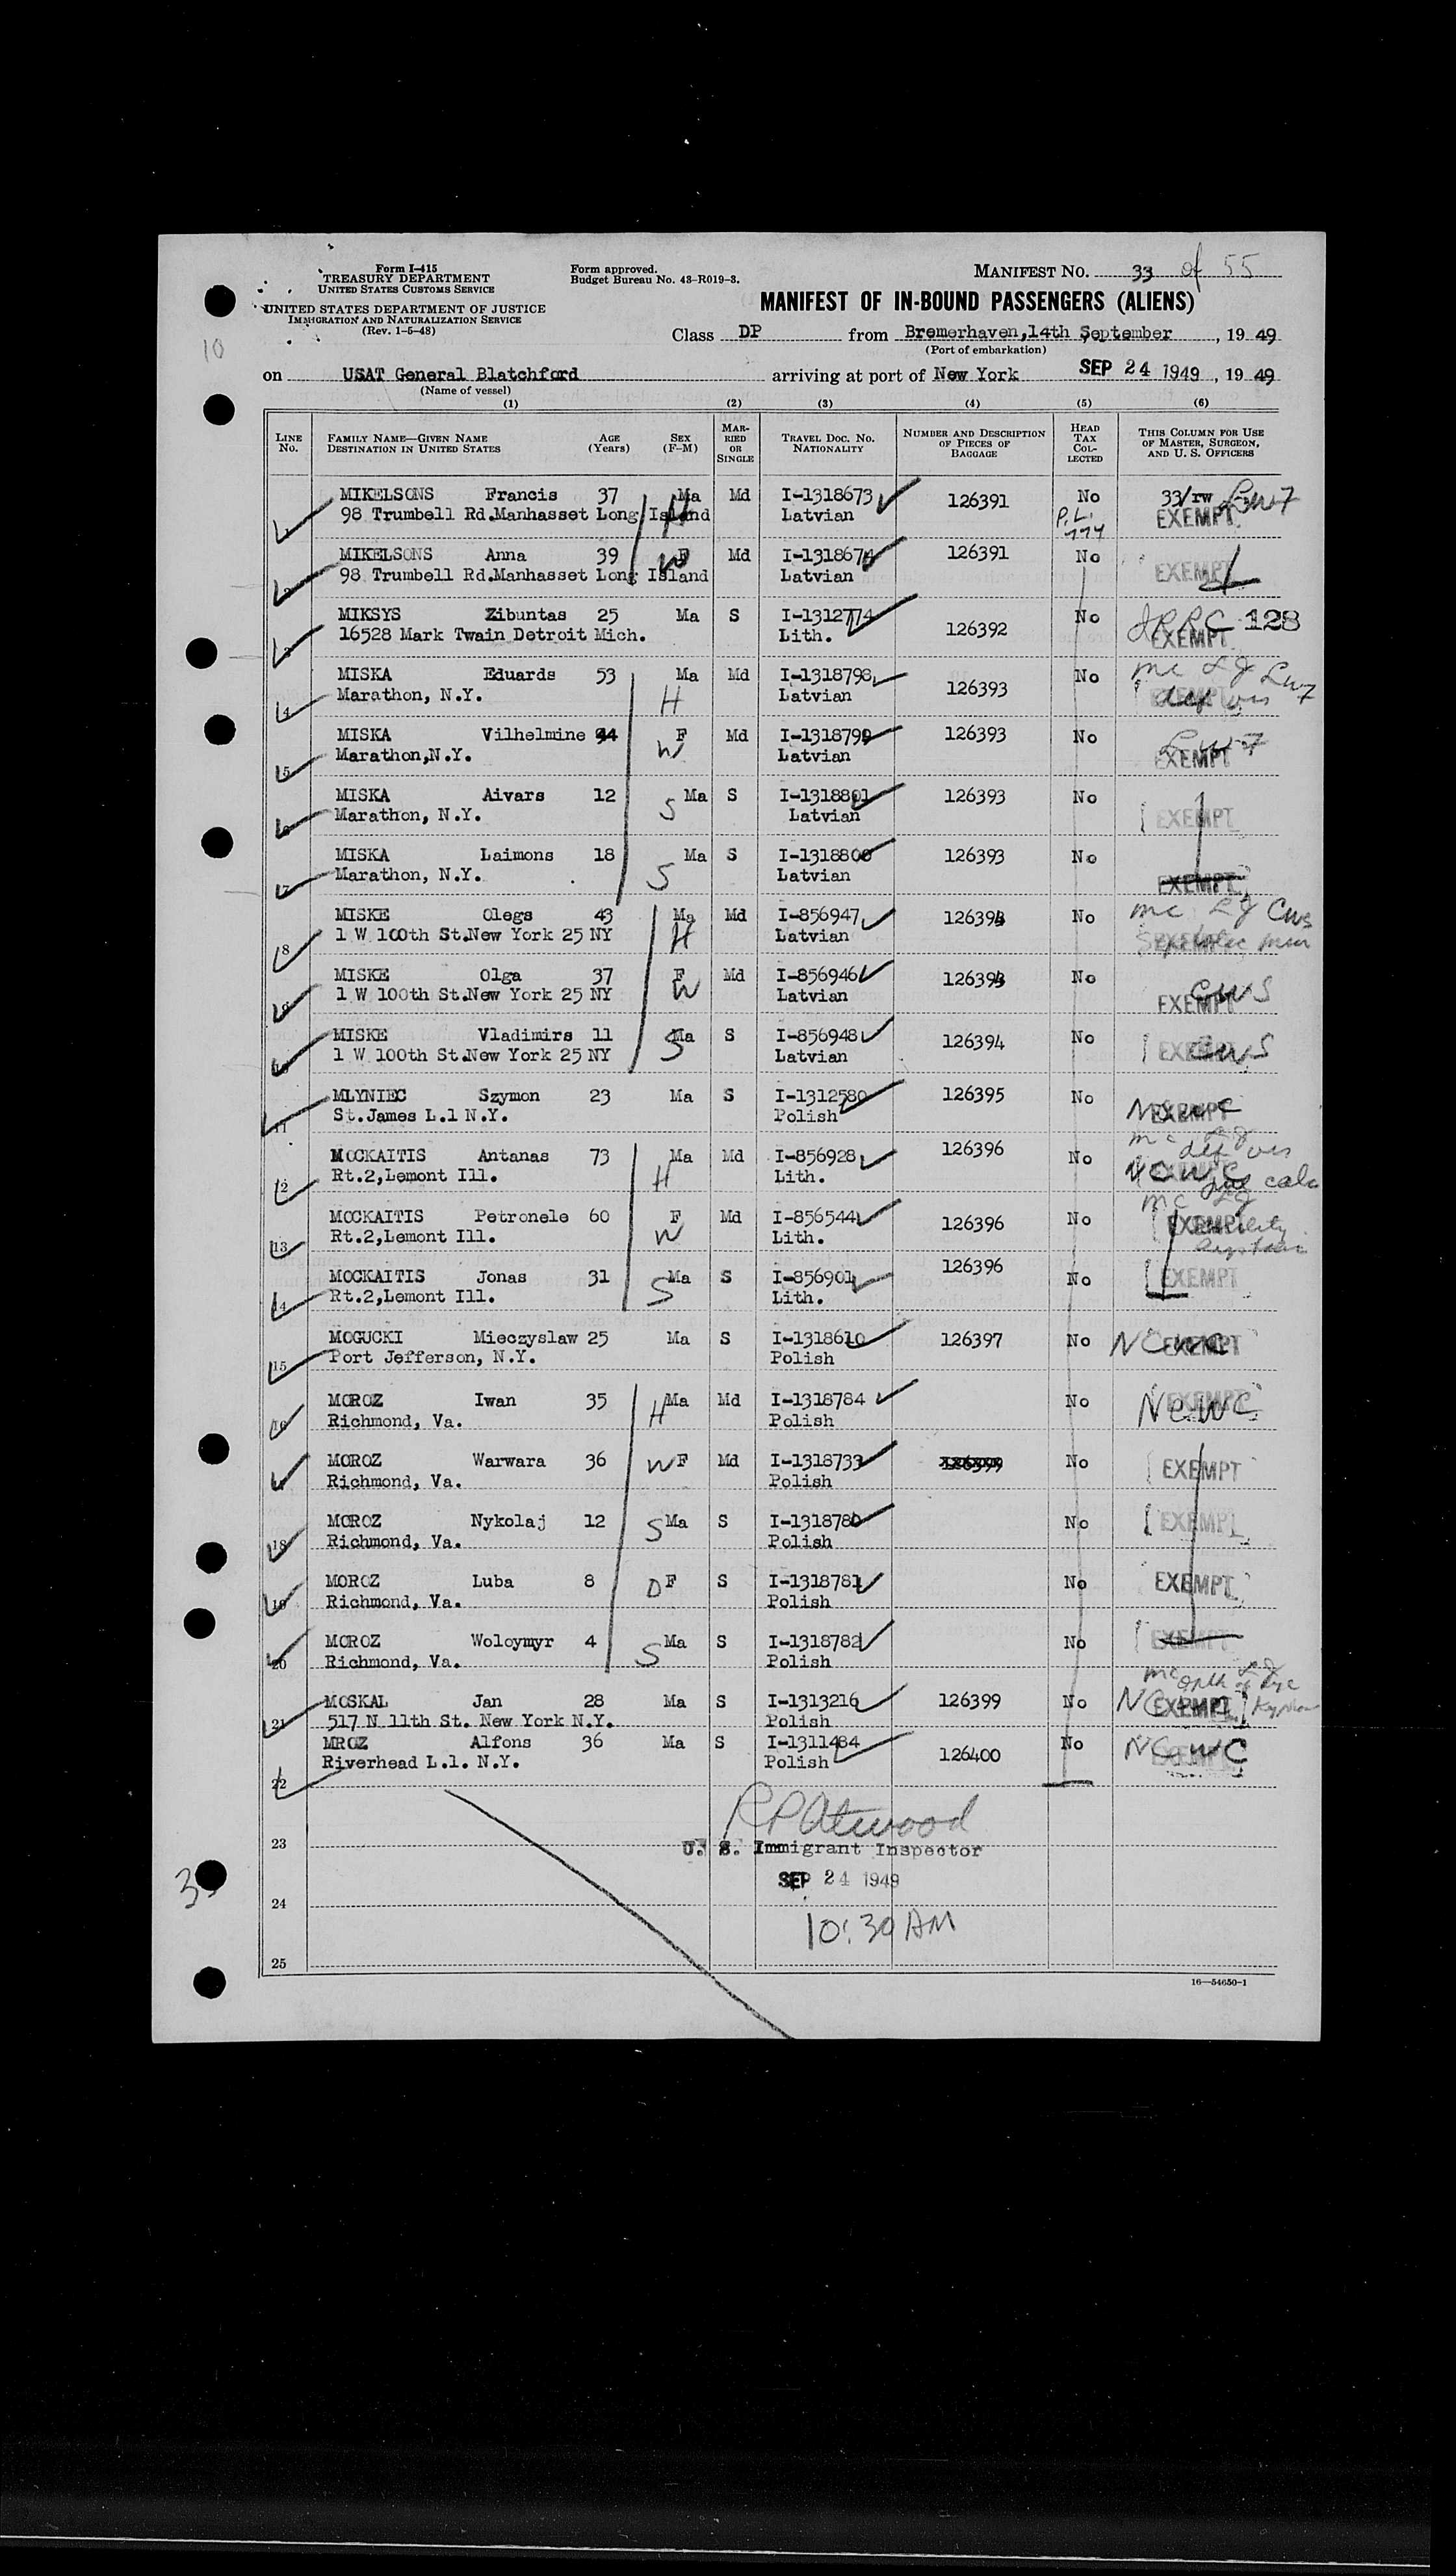 Form I-415
TREASURY DEPARTMENT
UNITED STATES CUSTOMS SERVICE
UNITED STATES DEPARTMENT OF JUSTICE
IMMIGRATION AND NATURALIZATION SERVICE
(Rev. 1-5-48)
Form approved.
Budget Bureau No. 43-R019-3.
MANIFEST NO. 33 of 55
MANIFEST OF IN-BOUND PASSENGERS (ALIENS)
10
Class DP from Bremerhaven,14th September, 19 49
(Port of embarkation)
on USAT General Blatchford arriving at port of New York SEP 24 1949, 19 49
(Name of vessel)
(1) (2) (3) (4) (5) (6)
LINE NO. FAMILY NAME—GIVEN NAME DESTINATION IN UNITED STATES AGE (Years) SEX (F-M) MARRIED OR SINGLE TRAVEL DOC. NO. NATIONALITY NUMBER AND DESCRIPTION OF PIECES OF BAGGAGE HEAD TAX COLLECTED THIS COLUMN FOR USE OF MASTER, SURGEON, AND U. S. OFFICERS
1 MIKELSONS Francis 37 Ma H Md I-1318673 126391 No 33/rw
98 Trumbell Rd.Manhasset Long Island Latvian P.L. 774 EXEMPT
2 MIKELSONS Anna 39 F W Md I-1318674 126391 No
98 Trumbell Rd.Manhasset Long Island Latvian EXEMPT
3 MIKSYS Zibuntas 25 Ma S I-1312774 126392 No 128
16528 Mark Twain Detroit Mich. Lith. EXEMPT
4 MISKA Eduards 53 Ma Md I-1318798 126393 No
Marathon, N.Y. H Latvian EXEMPT
5 MISKA Vilhelmine 44 F Md I-1318799 126393 No
Marathon,N.Y. W Latvian EXEMPT
6 MISKA Aivars 12 Ma S I-1318801 126393 No
Marathon, N.Y. S Latvian EXEMPT
7 MISKA Laimons 18 Ma S I-1318800 126393 No
Marathon, N.Y. S Latvian EXEMPT
8 MISKE Olegs 43 Ma Md I-856947 126394 No CWS
1 W 100th St.New York 25 NY H Latvian EXEMPT
9 MISKE Olga 37 F Md I-856946 126394 No CWS
1 W 100th St.New York 25 NY W Latvian EXEMPT
10 MISKE Vladimirs 11 Ma S I-856948 126394 No CWS
1 W 100th St.New York 25 NY S Latvian EXEMPT
11 MLYNIEC Szymon 23 Ma S I-1312580 126395 No NCWC
St.James L.l N.Y. Polish EXEMPT
12 MOCKAITIS Antanas 73 Ma Md I-856928 126396 No
Rt.2,Lemont Ill. H Lith. NCWC
13 MOCKAITIS Petronele 60 F Md I-856544 126396 No
Rt.2,Lemont Ill. W Lith. EXEMPT
14 MOCKAITIS Jonas 31 Ma S I-856901 126396 No
Rt.2,Lemont Ill. S Lith. EXEMPT
15 MOGUCKI Mieczyslaw 25 Ma S I-1318610 126397 No NCWC EXEMPT
Port Jefferson, N.Y. Polish
16 MOROZ Iwan 35 H Ma Md I-1318784 No EXEMPT NCWC
Richmond, Va. Polish
17 MOROZ Warwara 36 W F Md I-1318733 126399 No EXEMPT
Richmond, Va. Polish
18 MOROZ Nykolaj 12 S Ma S I-1318780 No EXEMPT
Richmond, Va. Polish
19 MOROZ Luba 8 D F S I-1318781 No EXEMPT
Richmond, Va. Polish
20 MOROZ Woloymyr 4 S Ma S I-1318782 No EXEMPT
Richmond, Va. Polish
21 MOSKAL Jan 28 Ma S I-1313216 126399 No NCWC EXEMPT
517 N 11th St. New York N.Y. Polish
22 MROZ Alfons 36 Ma S I-1311484 126400 No NCWC
Riverhead L.l. N.Y. Polish
RP Atwood
23 U. S. Immigrant Inspector
SEP 24 1949
24
10:30 AM
25
16—54650-1